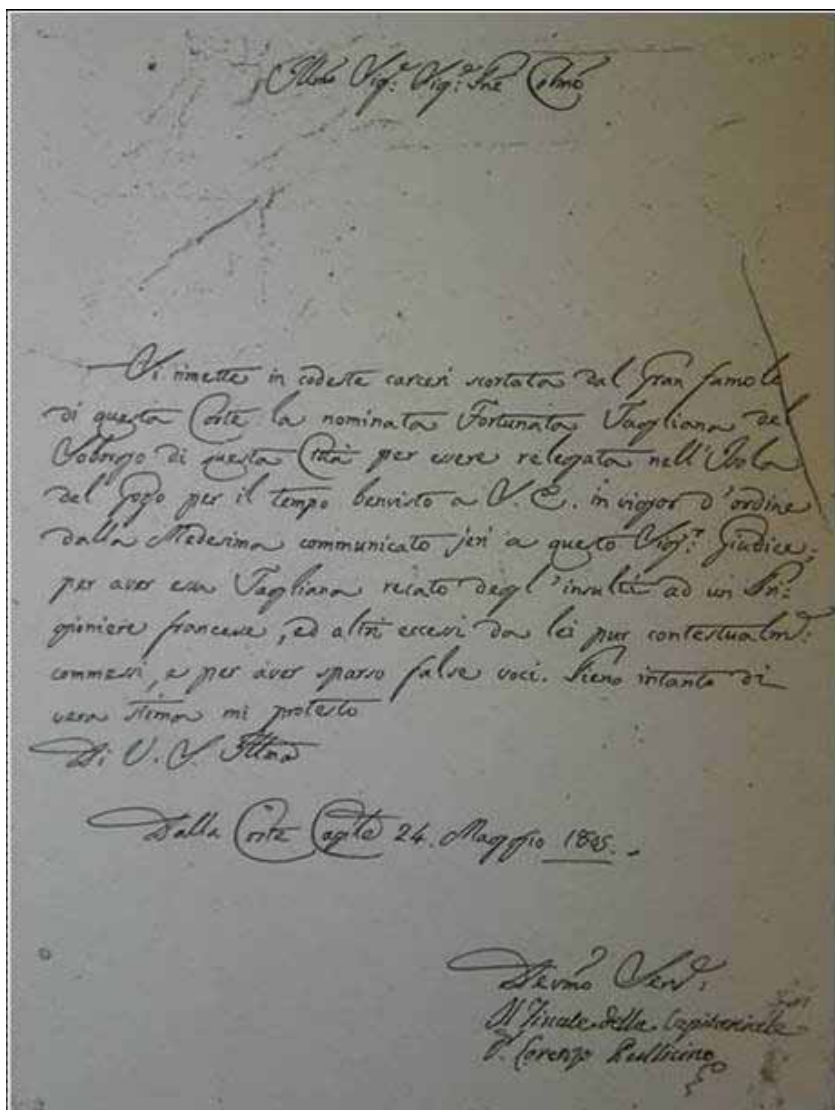 Illmo Sig.r Sig.r Pne Colmo
Si rimette in codeste carceri scortata dal Gran famole
di questa Corte la nominata Fortunata Tagliana del
Soborgo di questa Città per essere relegata nell'Isola
del Gozo per il tempo benvisto a S. E. in vigor d'ordine
dalla Medesima communicato jeri a questo Sig.r Giudice;
per aver essa Tagliana recato degl'insulti ad un Pri:
gioniere francese, ed altri eccessi da lei pur contestualm.e:
commessi, e per aver sparso false voci. Pieno intanto di
vera stima mi protesto
Di V. S. Illma
Dalla Corte Capitle 24. Maggio 1805.
Devmo Serv.e:
Il Fiscale della Capitaniale
D. Lorenzo Pullicino